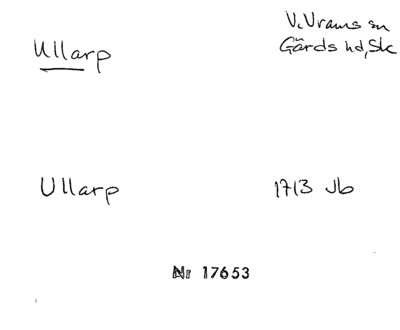 Ullarp
V. Vrams sn
Gärds hd, Sk
Ullarp
1713 Jb
Nr 17653